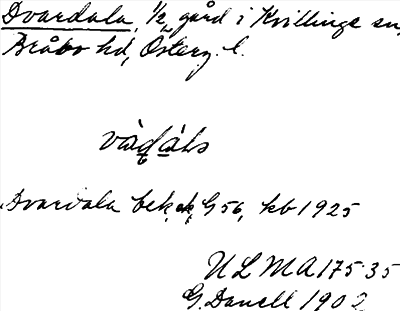 Dvardala, 1/2 gård i Kvillinge sn,
Bråbo hd, Österg. l.
Dvardala bek. G 56, kb 1925
ULMA 175:35
G. Danell 1902